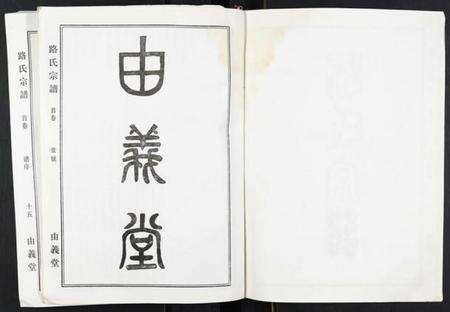 由義堂
路氏宗譜
首卷
堂號
由義堂
路氏宗譜
首卷
譜序
十五
由義堂